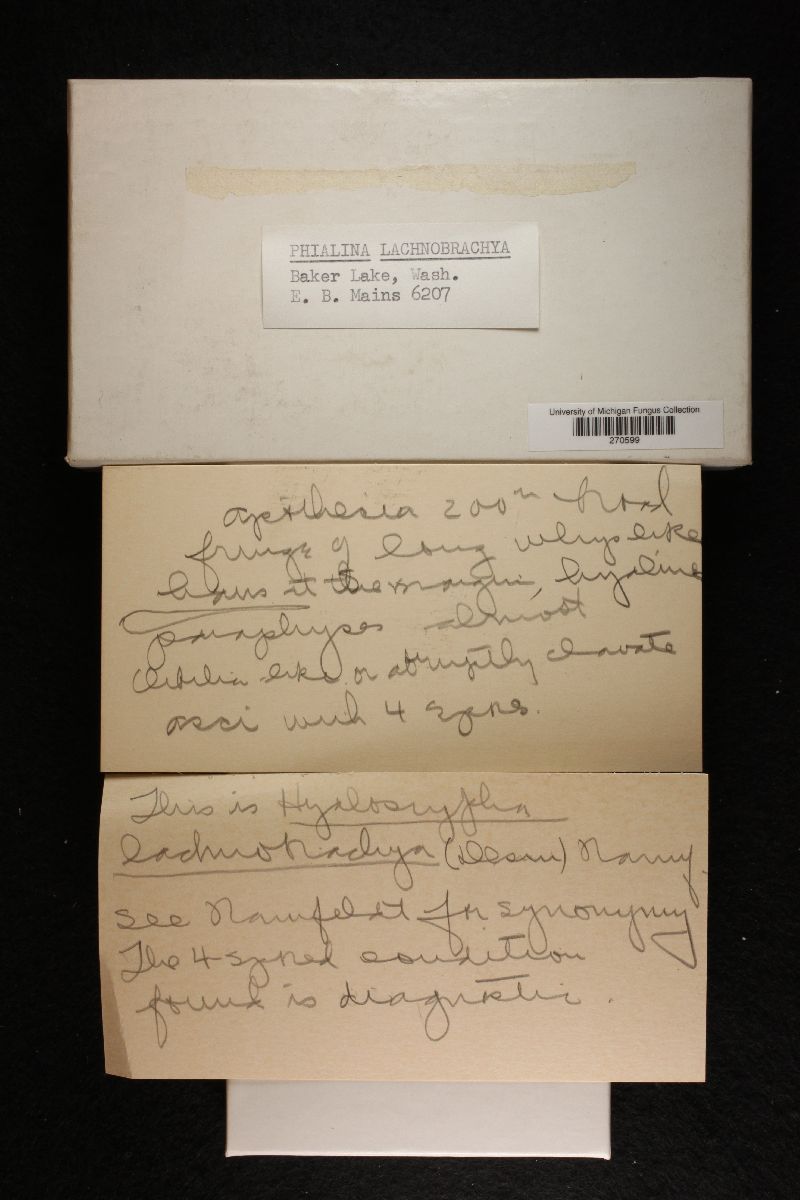 PHIALINA LACHNOBRACHYA
Baker Lake, Wash.
E. B. Mains 6207
University of Michigan Fungus Collection
270599
apothecia 200 broad
fringe of long whip like
hairs at the margin, hyaline
paraphyses almost
like or abruptly clavate
asci with 4 spores.
This is Hyaloscypha
lachnobrachya (Desm) Nannf.
see Nannfeldt for synonymy
The 4 spored condition
found is diagnostic.